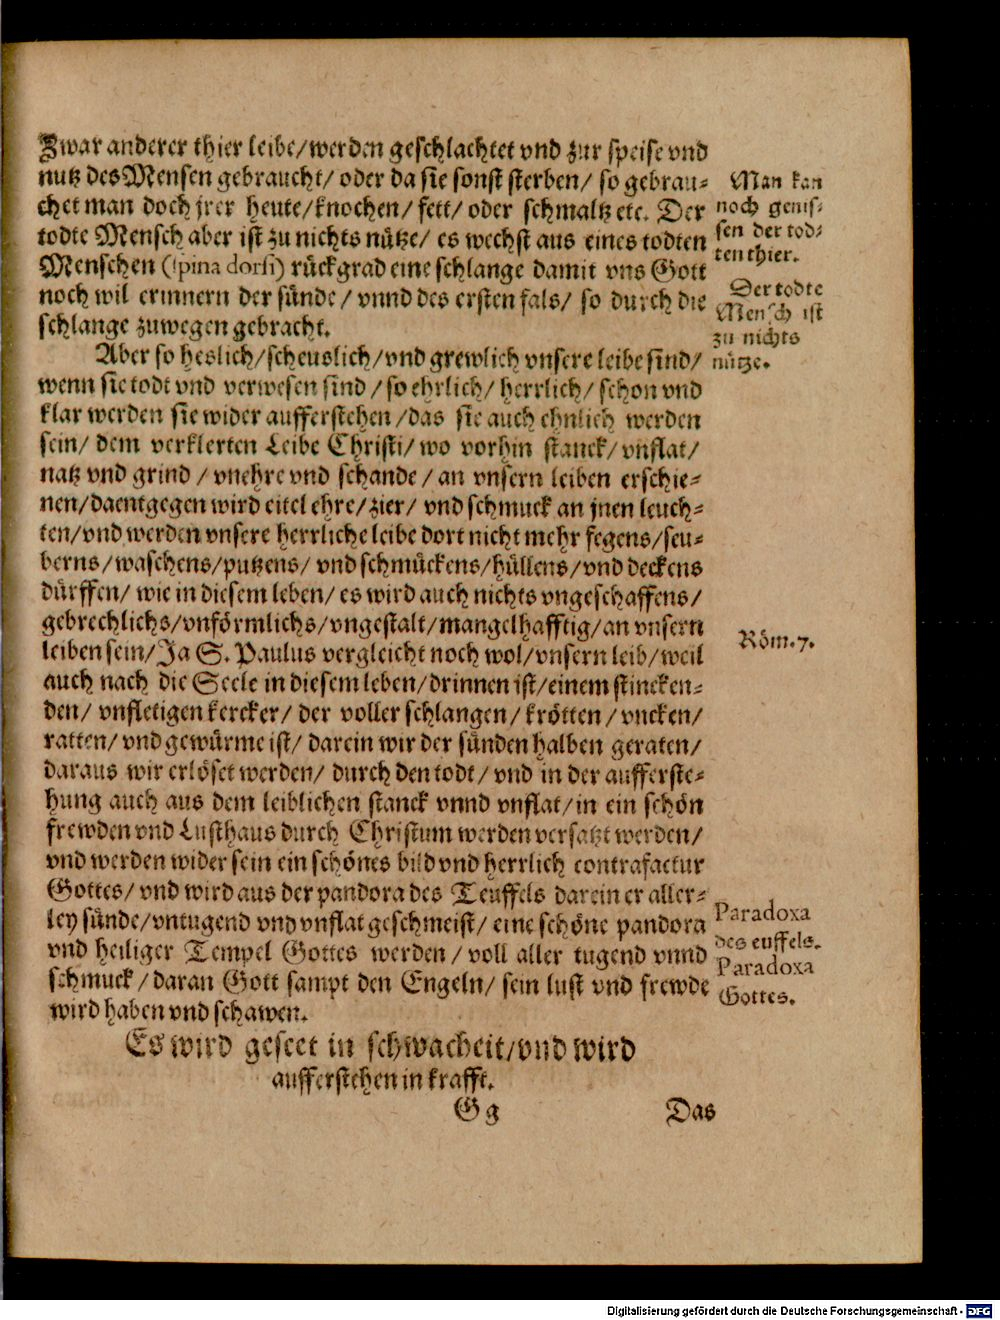 Zwar anderer thier leibe/werden geschlachtet vnd zur speise vnd
nutz des Mensen gebraucht/ oder da sie sonst sterben/ so gebrau-
chet man doch jrer heute/knochen/ fett/ oder schmaltz etc. Der
todte Mensch aber ist zu nichts nütze/ es wechst aus eines todten
Menschen (spina dorsi) rückgrad eine schlange damit vns Gott
noch wil erinnern der sünde/ vnnd des ersten fals/ so durch die
schlange zuwegen gebracht.
Man kan
noch genis-
sen der tod-
ten thier.
Der todte
Mensch ist
zu nichts
nütze.
Aber so heslich/scheuslich/vnd grewlich vnsere leibe sind/
wenn sie todt vnd verwesen sind /so ehrlich/ herrlich/ schon vnd
klar werden sie wider aufferstehen /das sie auch ehnlich werden
sein/ dem verklerten Leibe Christi/ wo vorhin stanck/ vnflat/
natz vnd grind / vnehre vnd schande / an vnsern leiben erschie-
nen/daentgegen wird eitel ehre/zier/ vnd schmuck an jnen leuch-
ten/vnd werden vnsere herrliche leibe dort nicht mehr fegens/seu-
berns/waschens/putzens/ vnd schmückens/hüllens/vnd deckens
dürffen/ wie in diesem leben/ es wird auch nichts vngeschaffens/
gebrechlichs/vnförmlichs/vngestalt/mangelhafftig/an vnsern
leiben sein/Ja S. Paulus vergleicht noch wol/vnsern leib/weil
auch nach die Seele in diesem leben/drinnen ist/einem stincken-
den/ vnfletigen kercker/ der voller schlangen/ krötten /vncken/
ratten/ vnd gewürme ist/ darein wir der sünden halben geraten/
daraus wir erlöset werden/ durch den todt/ vnd in der aufferste-
hung auch aus dem leiblichen stanck vnnd vnflat/in ein schön
frewden vnd Lusthaus durch Christum werden versatzt werden/
vnd werden wider sein ein schönes bild vnd herrlich contrafactur
Gottes/ vnd wird aus der pandora des Teuffels darein er aller-
ley sünde/vntugend vnd vnflat geschmeist/ eine schöne pandora
vnd heiliger Tempel Gottes werden/ voll aller tugend vnnd
schmuck/ daran Gott sampt den Engeln/ sein lust vnd frewde
wird haben vnd schawen.
Röm.7.
Paradoxa
des euffels.
Paradoxa
Gottes.
Es wird geseet in schwacheit/vnd wird
aufferstehen in krafft.
Gg Das
Digitalisierung gefördert durch die Deutsche Forschungsgemeinschaft - DFG